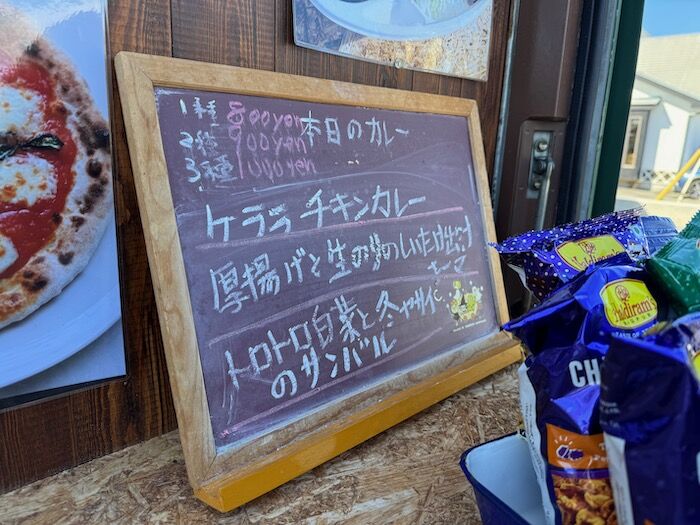 1種 800yen 本日のカレー
2種 900yen
3種 1000yen
ケララチキンカレー
厚揚げと生のりのしいたけ出汁
キーマ
トロトロ白菜と冬ヤサイ
のサンバル
Haldiram's
Haldiram's
CH